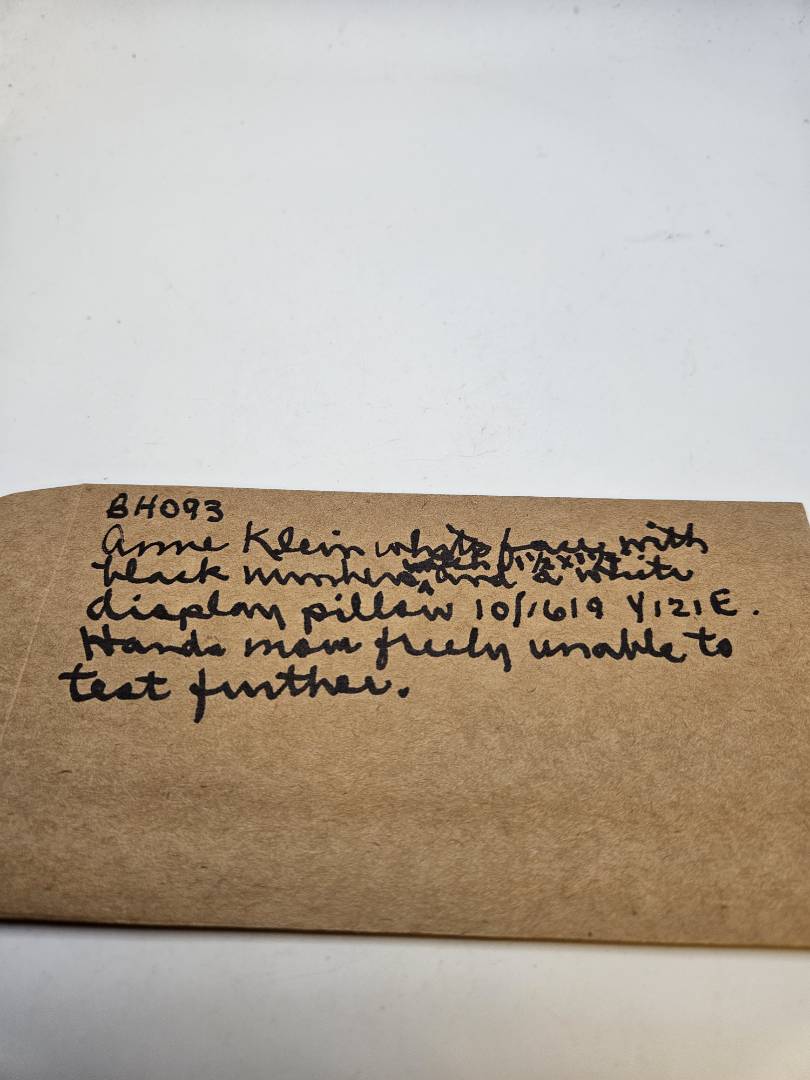 BH093
Anne Klein white face with
black numbers watch 1 1/2 x 1 1/2 and a white
display pillow 10/1619 Y121E.
Hands move freely unable to
test further.